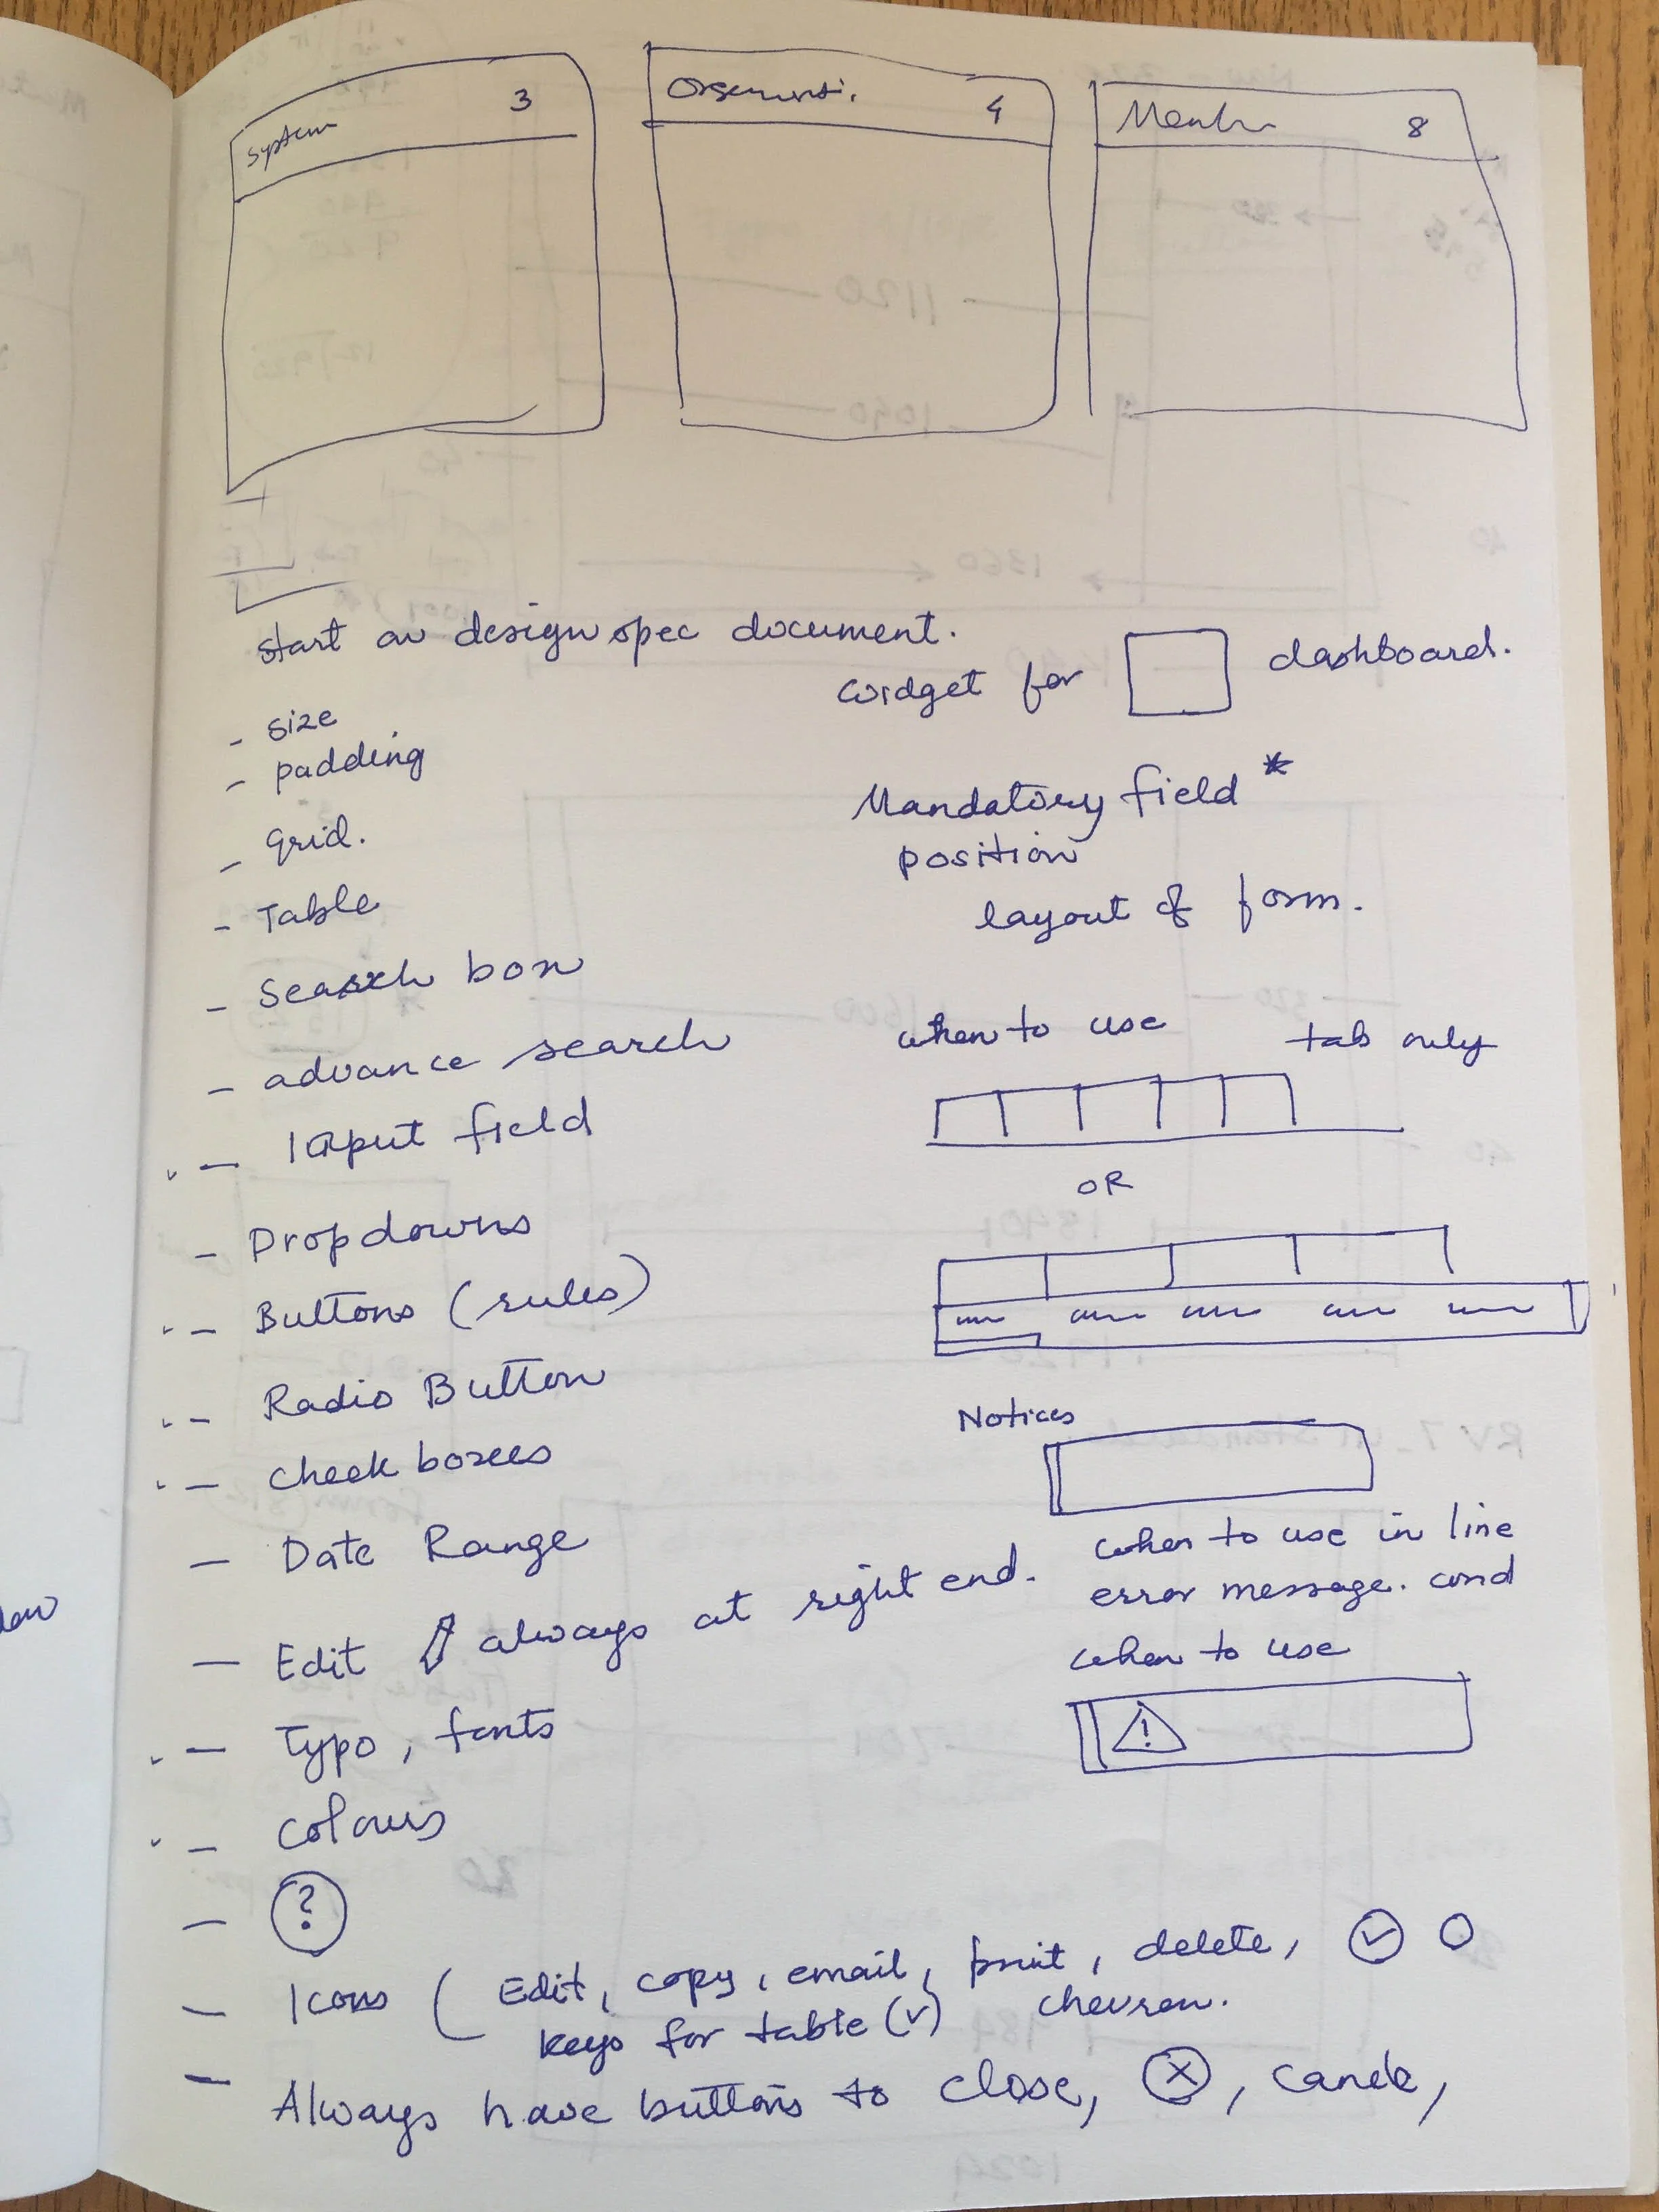 System 3
4
8
Start on design spec document.
- size
- padding
- grid.
- Table
- Search box
- advance search
- Input field
- Dropdowns
- Buttons (rules)
- Radio Button
- Check boxes
- Date Range
- Edit always at right end.
- Typo, fonts
- Colours
- ?
- Icons ( Edit, copy, email, print, delete,
keys for table (v) chevron.
- Always have buttons to close, x, cancle,
widget for dashboard.
Mandatory field *
position
layout of form.
when to use tab only
OR
Notices
when to use in line
error message. and
when to use
!